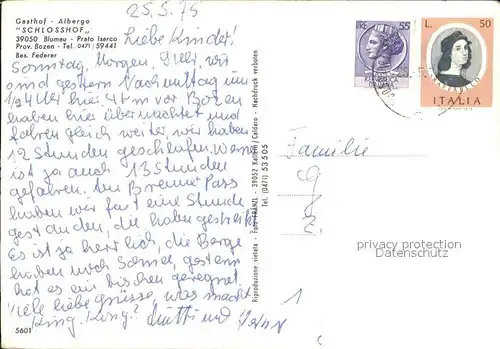 25.5.75
Gasthof - Albergo
"SCHLOSSHOF"
39050 Blumau - Prato Isarco
Prov. Bozen - Tel. 0471/59441
Bes. Federer
Liebe Kinder!
Sonntag, Morgen, 9 Uhr, wir
sind gestern Nachmittag um
1/2 4 Uhr hier, 4 km vor Bozen
haben hier übernachtet und
fahren gleich weiter, wir haben
12 Stunden geschlafen.
ist ja auch 13 Stunden
gefahren. Am Brenner Pass
haben wir fast eine Stunde
gestanden, die haben gestreikt
Es ist ja herrlich, die Berge
haben noch Schnee, gestern
hat es ein bischen geregnet
Viele liebe Grüsse, was macht
King-King? Mutti und
5601
Riproduzione vietata - Foto TRANZL - 39052 Kaltern/Caldaro - Nachdruck verboten
Tel. (0471) 53505
LIRE 55
L. 50
RAFFAELLO
ITALIA
Familie
privacy protection
Datenschutz
1